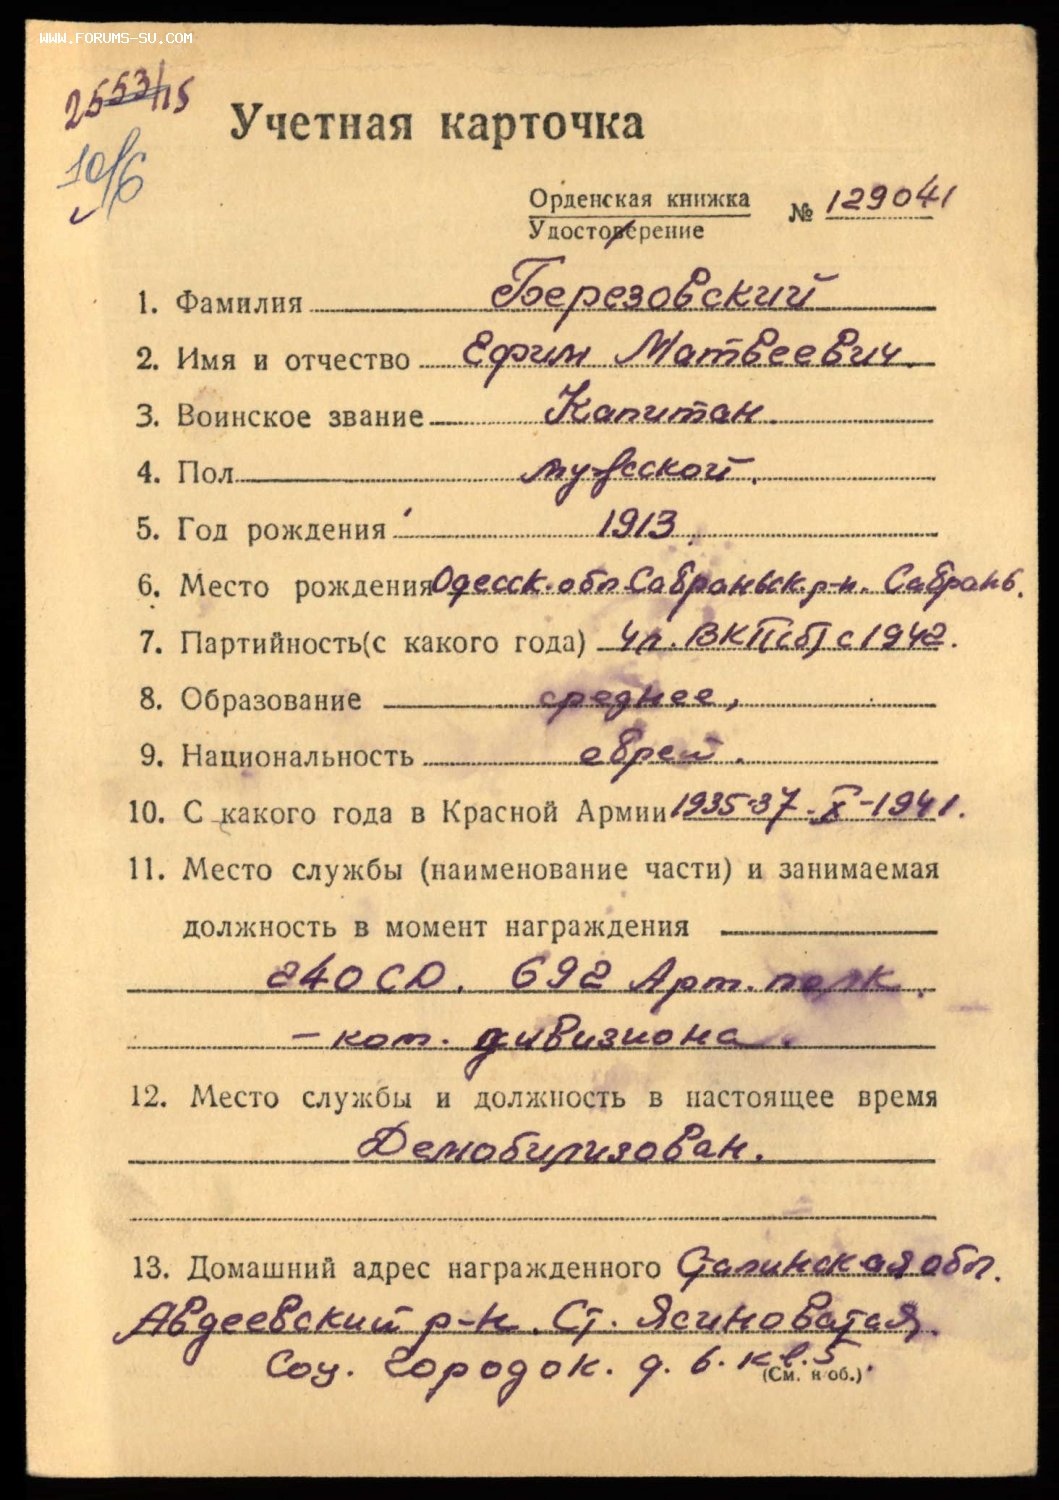 WWW.FORUMS-SU.COM
2553/15
10/6
Учетная карточка
Орденская книжка № 129041
Удостоверение
1. Фамилия Березовский
2. Имя и отчество Ефим Матвеевич.
3. Воинское звание Капитан.
4. Пол мужской.
5. Год рождения 1913.
6. Место рождения Одесск. обл. Савраньск. р-н. Саврань.
7. Партийность (с какого года) чл. ВКП(б) с 1942.
8. Образование среднее,
9. Национальность еврей.
10. С какого года в Красной Армии 1935-37. X-1941.
11. Место службы (наименование части) и занимаемая
должность в момент награждения
240 СД. 692 Арт. полк.
- ком. дивизиона.
12. Место службы и должность в настоящее время
Демобилизован.
13. Домашний адрес награжденного Сталинская обл.
Авдеевский р-н. Ст. Ясиноватая,
Соц. Городок. д. 6. кв. 5.
(См. н об.)